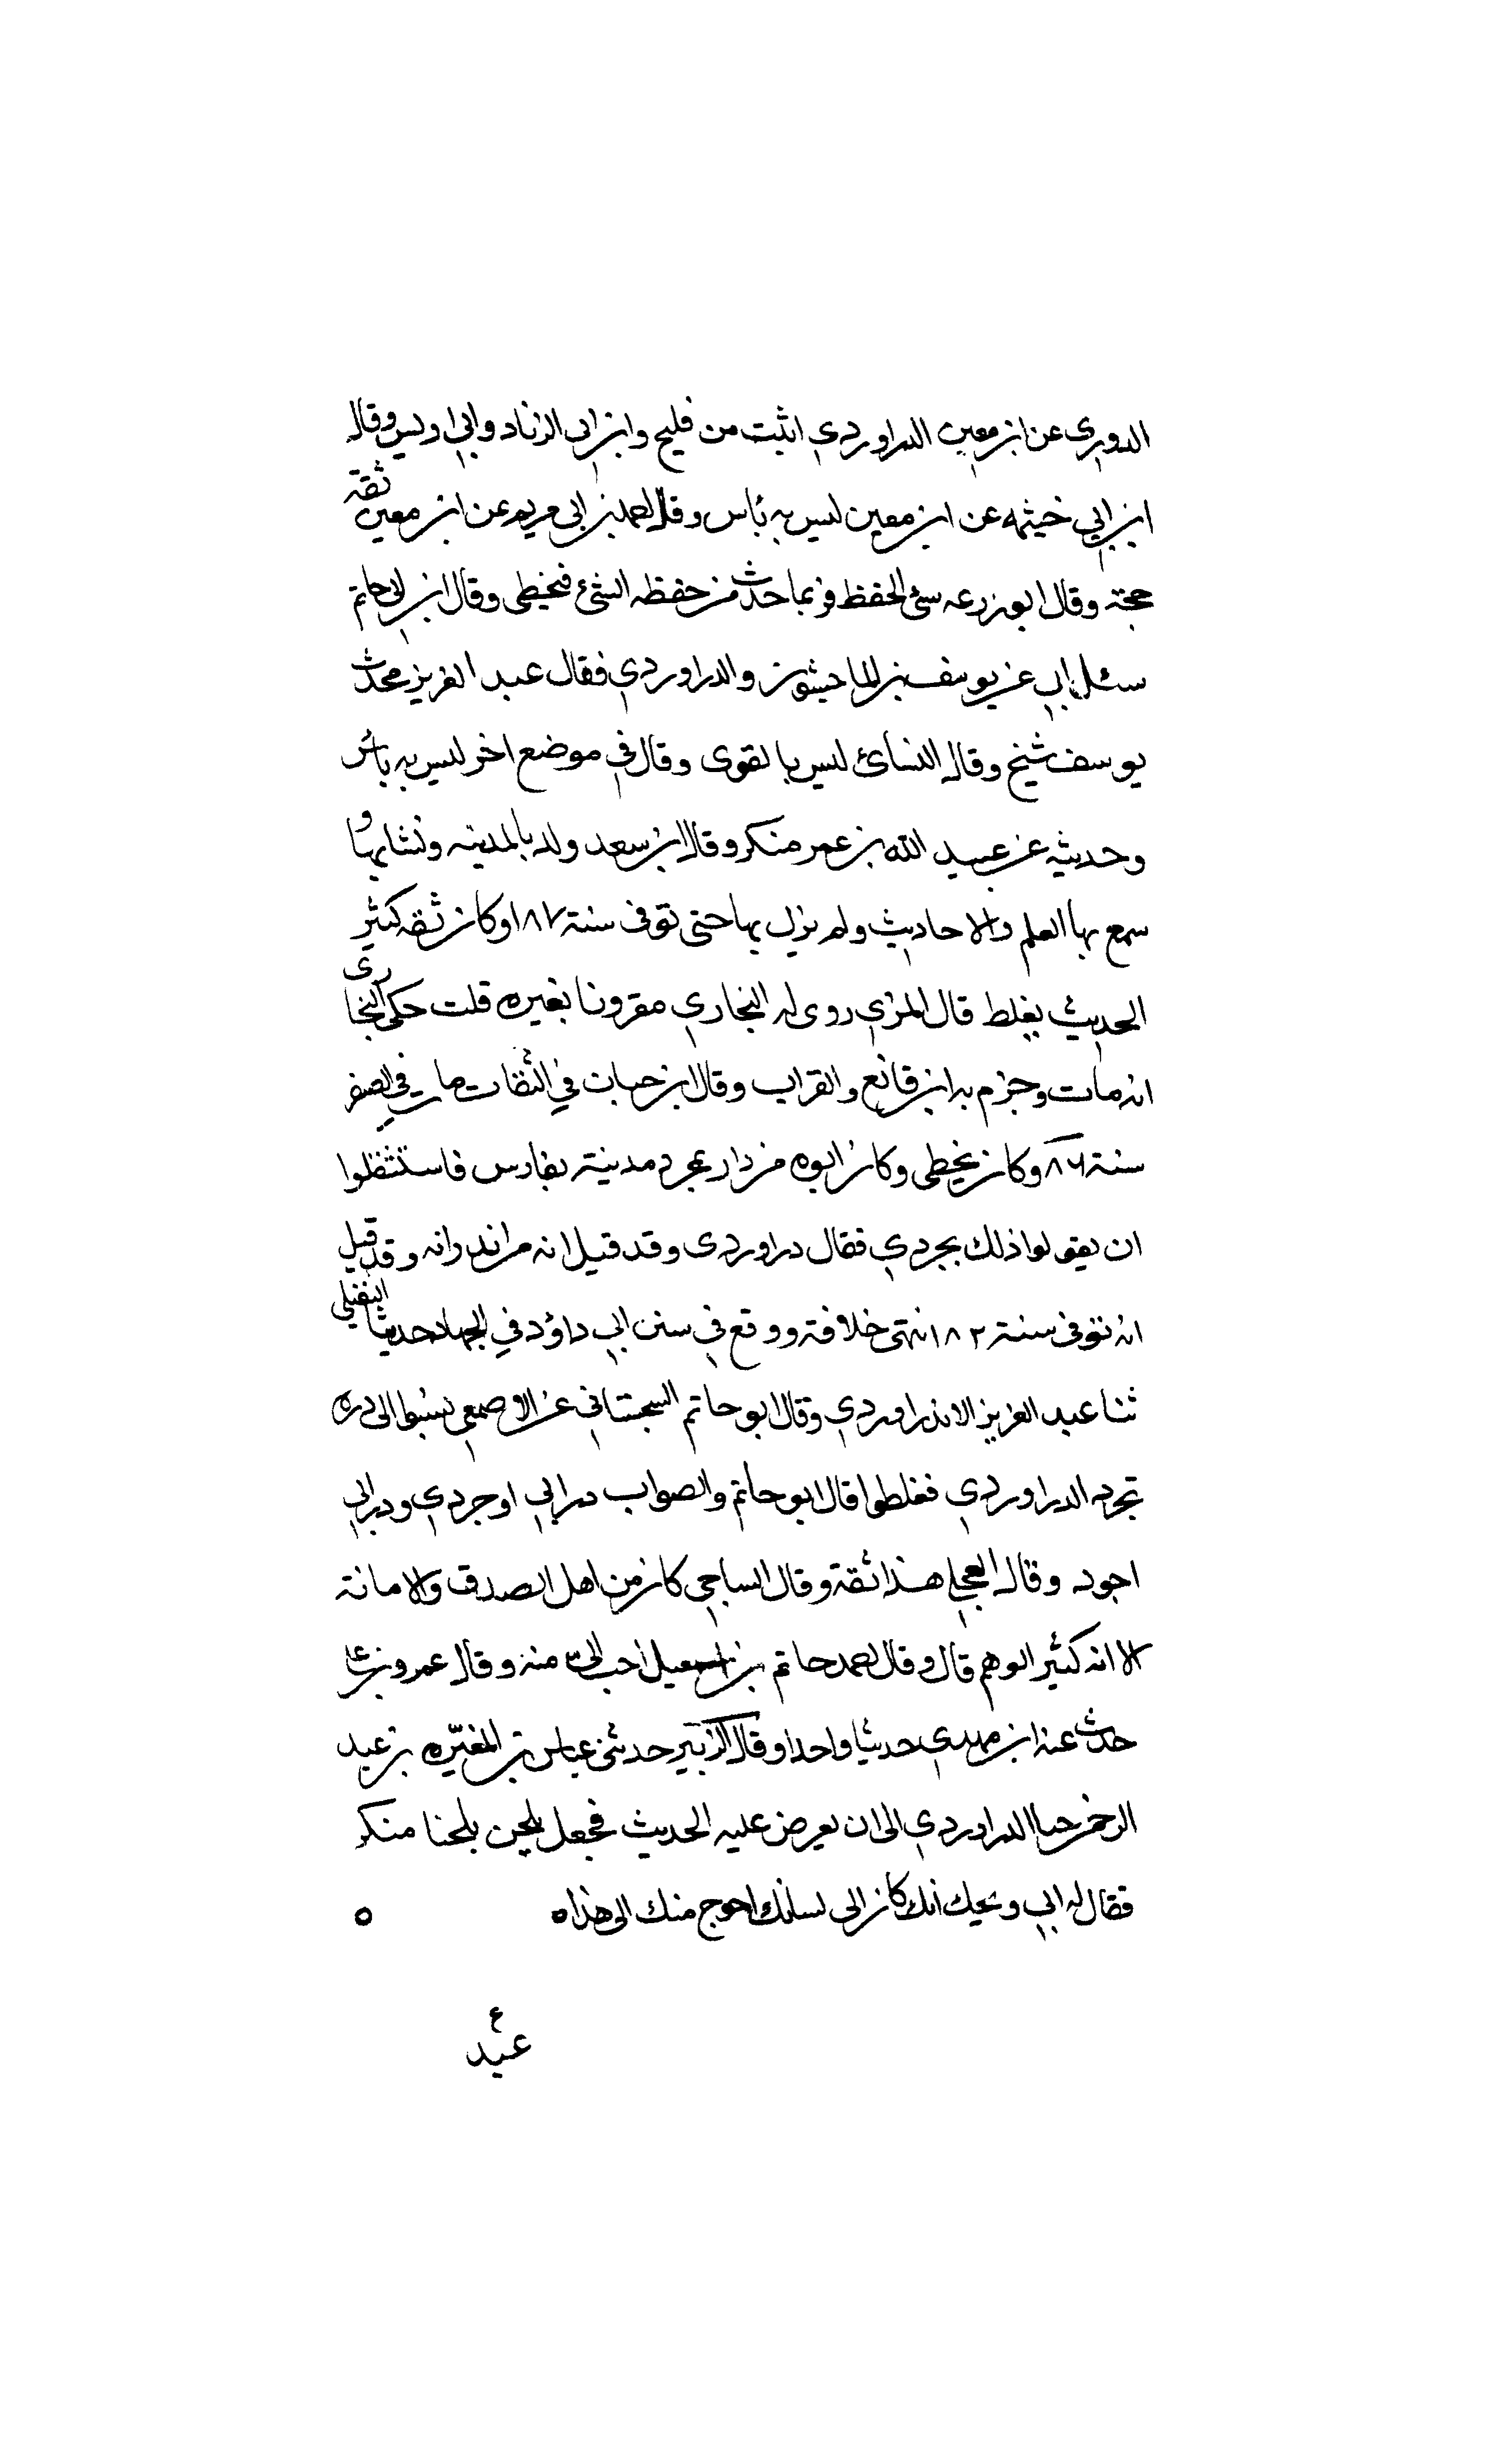 الدوري عن ابن معين الدراوردي اثبت من فليح وابن ابي الزناد وابي اويس وقال
ابن ابي خيثمه عن ابن معين ليس به باس وقال احمد بن ابي مريم عن ابن معين ثقة
حجة وقال ابو زرعه سئ الحفظ فربما حدث من حفظه الشئ فيخطى وقال ابن ابي حاتم
سئل ابي عن يوسف بن الماجشون والدراوردي فقال عبد العزيز محدث
يوسف شيخ وقال النسائ ليس بالقوى وقال في موضع اخر ليس به باس
وحديثه عن عبيد الله بن عمر منكر وقال ابن سعد ولد بالمدينه ونشا بها و
سمع بها العلم والاحاديث ولم يزل بها حتى توفى سنة ١٨٧ وكان ثقه كثير
الحديث يغلط قال المزي روى له البخاري مقرونا بغيره قلت حكى البخارى
انه مات وجزم به ابن قانع والقراب وقال ابن حبان في الثقات مات في الصفر
سنة ٨٦ وكان يخطى وكان ابوه من دار بجرد مدينة بفارس فاستثقلوا
ان يقولوا ذلك بجردي فقال دراوردى وقد قيل انه من اندرانه وقد قيل
انه توفى سنة ١٨٢ انتهى خلافة ووقع في سنن ابي داؤد في الجهاد حديثا النفيلي
ثنا عبد العزيز الاندراوردي وقال ابو حاتم السجستاني عن الاصمعي نسبوا الى دره
بجرد الدراوردي فغلطوا قال ابو حاتم والصواب درابي او جردي ودرابي
اجود وقال العجلي هذا ثقة وقال الساجي كان من اهل الصدق والامانة
الا انه كثير الوهم قال وقال احمد حاتم بن اسمعيل احب الىّ منه وقال عمرو بن علي
حدث عنه ابن مهدي حديثا واحدا وقال الزبير حدثني عباس بن المغيّره بن عبد
الرحمن جاء الدراوردي الى ان يعرض عليه الحديث فجعل يلحن يلحنا منكر
فقال له ابي ويحيك انك كان الى لسانك احوج منك الى هذا ه ه
ع
عبد